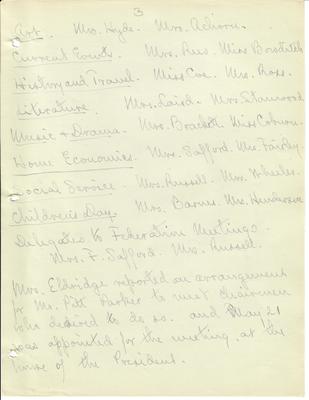 3
Art. Mrs. Hyde. Mrs. Achorn.
Current Events. Mrs. Rees. Miss
History and Travel. Miss Coe. Mrs. Ross.
Literature. Mrs. Laird. Mrs. Stanwood
Music & Drama. Mrs. Brackett. Miss
Home Economics. Mrs. Safford. Mrs. Farley
Social Service. Mrs. Russell. Mrs. Wheeler.
Children's Day. Mrs. Barnes. Mrs. Henderson
Delegates to Federation Meetings.
Mrs. F. Safford. Mrs. Russell.
Mrs. Eldridge reported on arrangement
for Mr. Pitt Parker to meet chairmen
who desired to do so. and May 21
was appointed for the meeting. at the
house of the President.